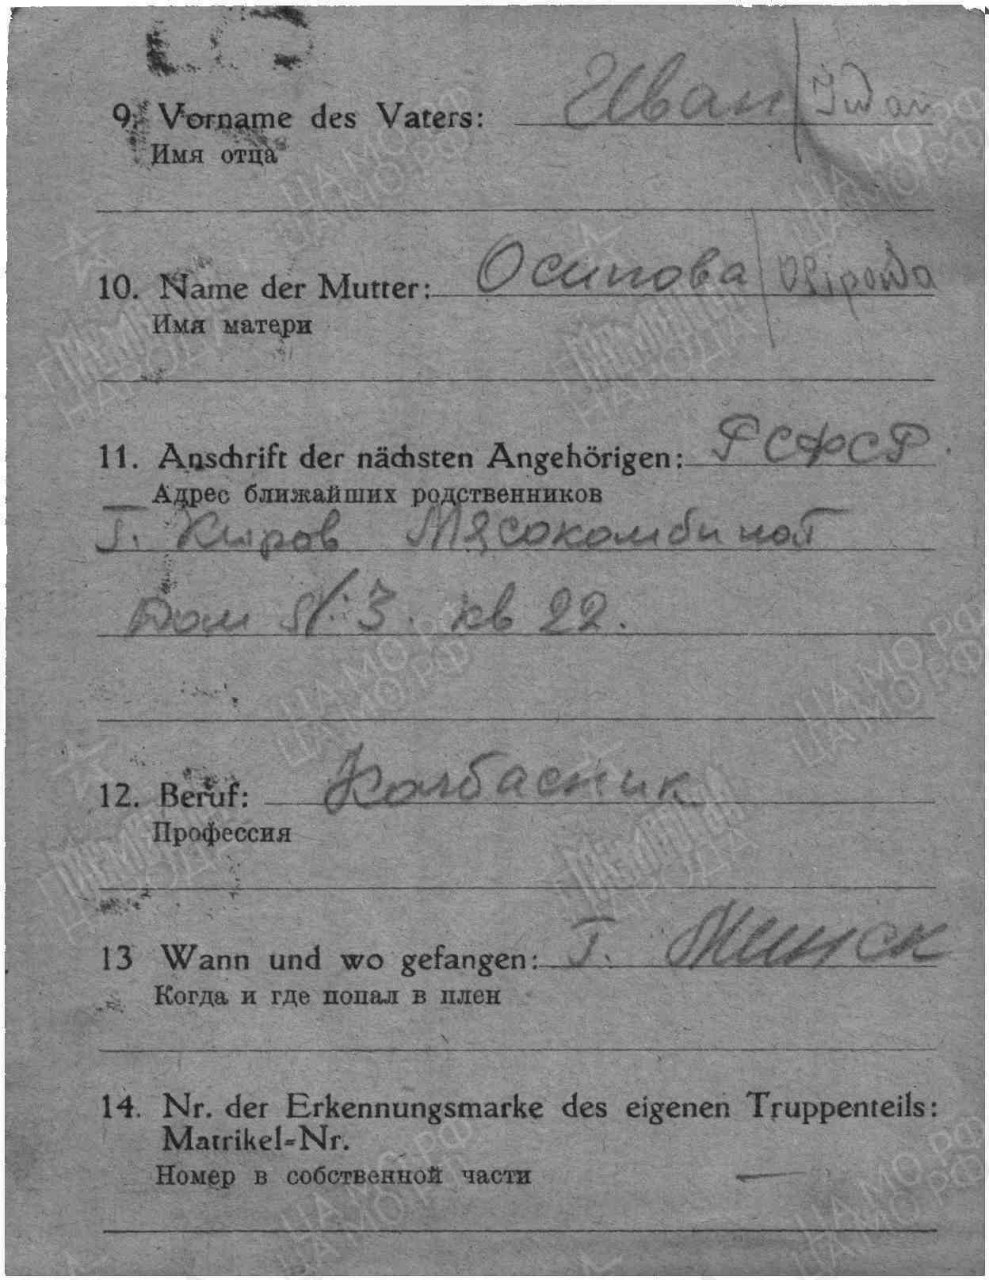 9. Vorname des Vaters: Иван / Iwan
Имя отца
10. Name der Mutter: Осипова / Osipowa
Имя матери
11. Anschrift der nächsten Angehörigen: РСФСР.
Адрес ближайших родственников
Г. Киров Мясокомбинат
Дом №: 3. кв 22.
12. Beruf: Колбасник
Профессия
13 Wann und wo gefangen: Г. Минск
Когда и где попал в плен
14. Nr. der Erkennungsmarke des eigenen Truppenteils: —
Matrikel-Nr.
Номер в собственной части
ЦАМО РФ
ЦАМО РФ
ПАМЯТЬ НАРОДА